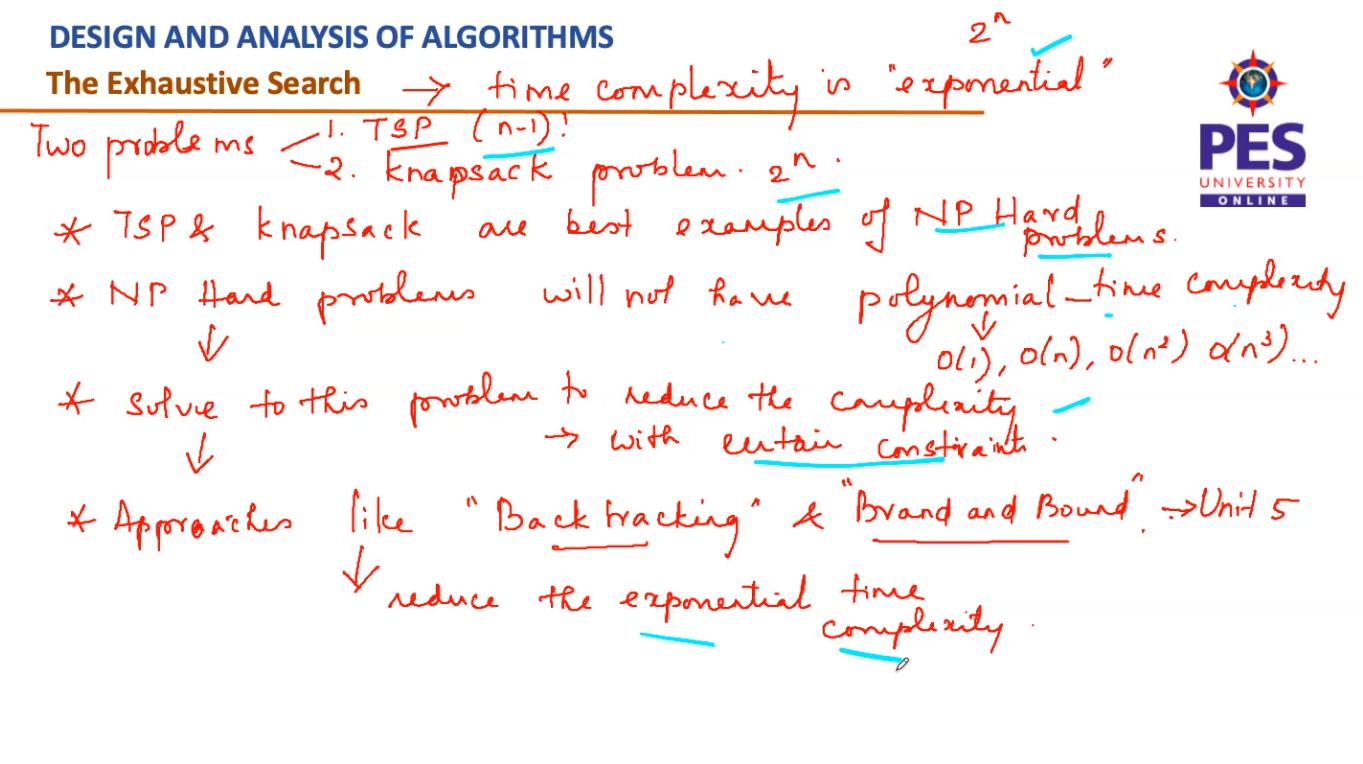 DESIGN AND ANALYSIS OF ALGORITHMS
2^n
The Exhaustive Search → time complexity is "exponential"
Two problems
1. TSP (n-1)!
2. Knapsack problem. 2^n.
* TSP & knapsack are best examples of NP Hard
problems.
* NP Hard problems will not have polynomial-time complexity
O(1), O(n), O(n²) O(n³)...
* Solve to this problem to reduce the complexity
→ with certain constraints.
* Approaches like "Backtracking" & "Brand and Bound". → Unit 5
reduce the exponential time
complexity.
PES
UNIVERSITY
ONLINE